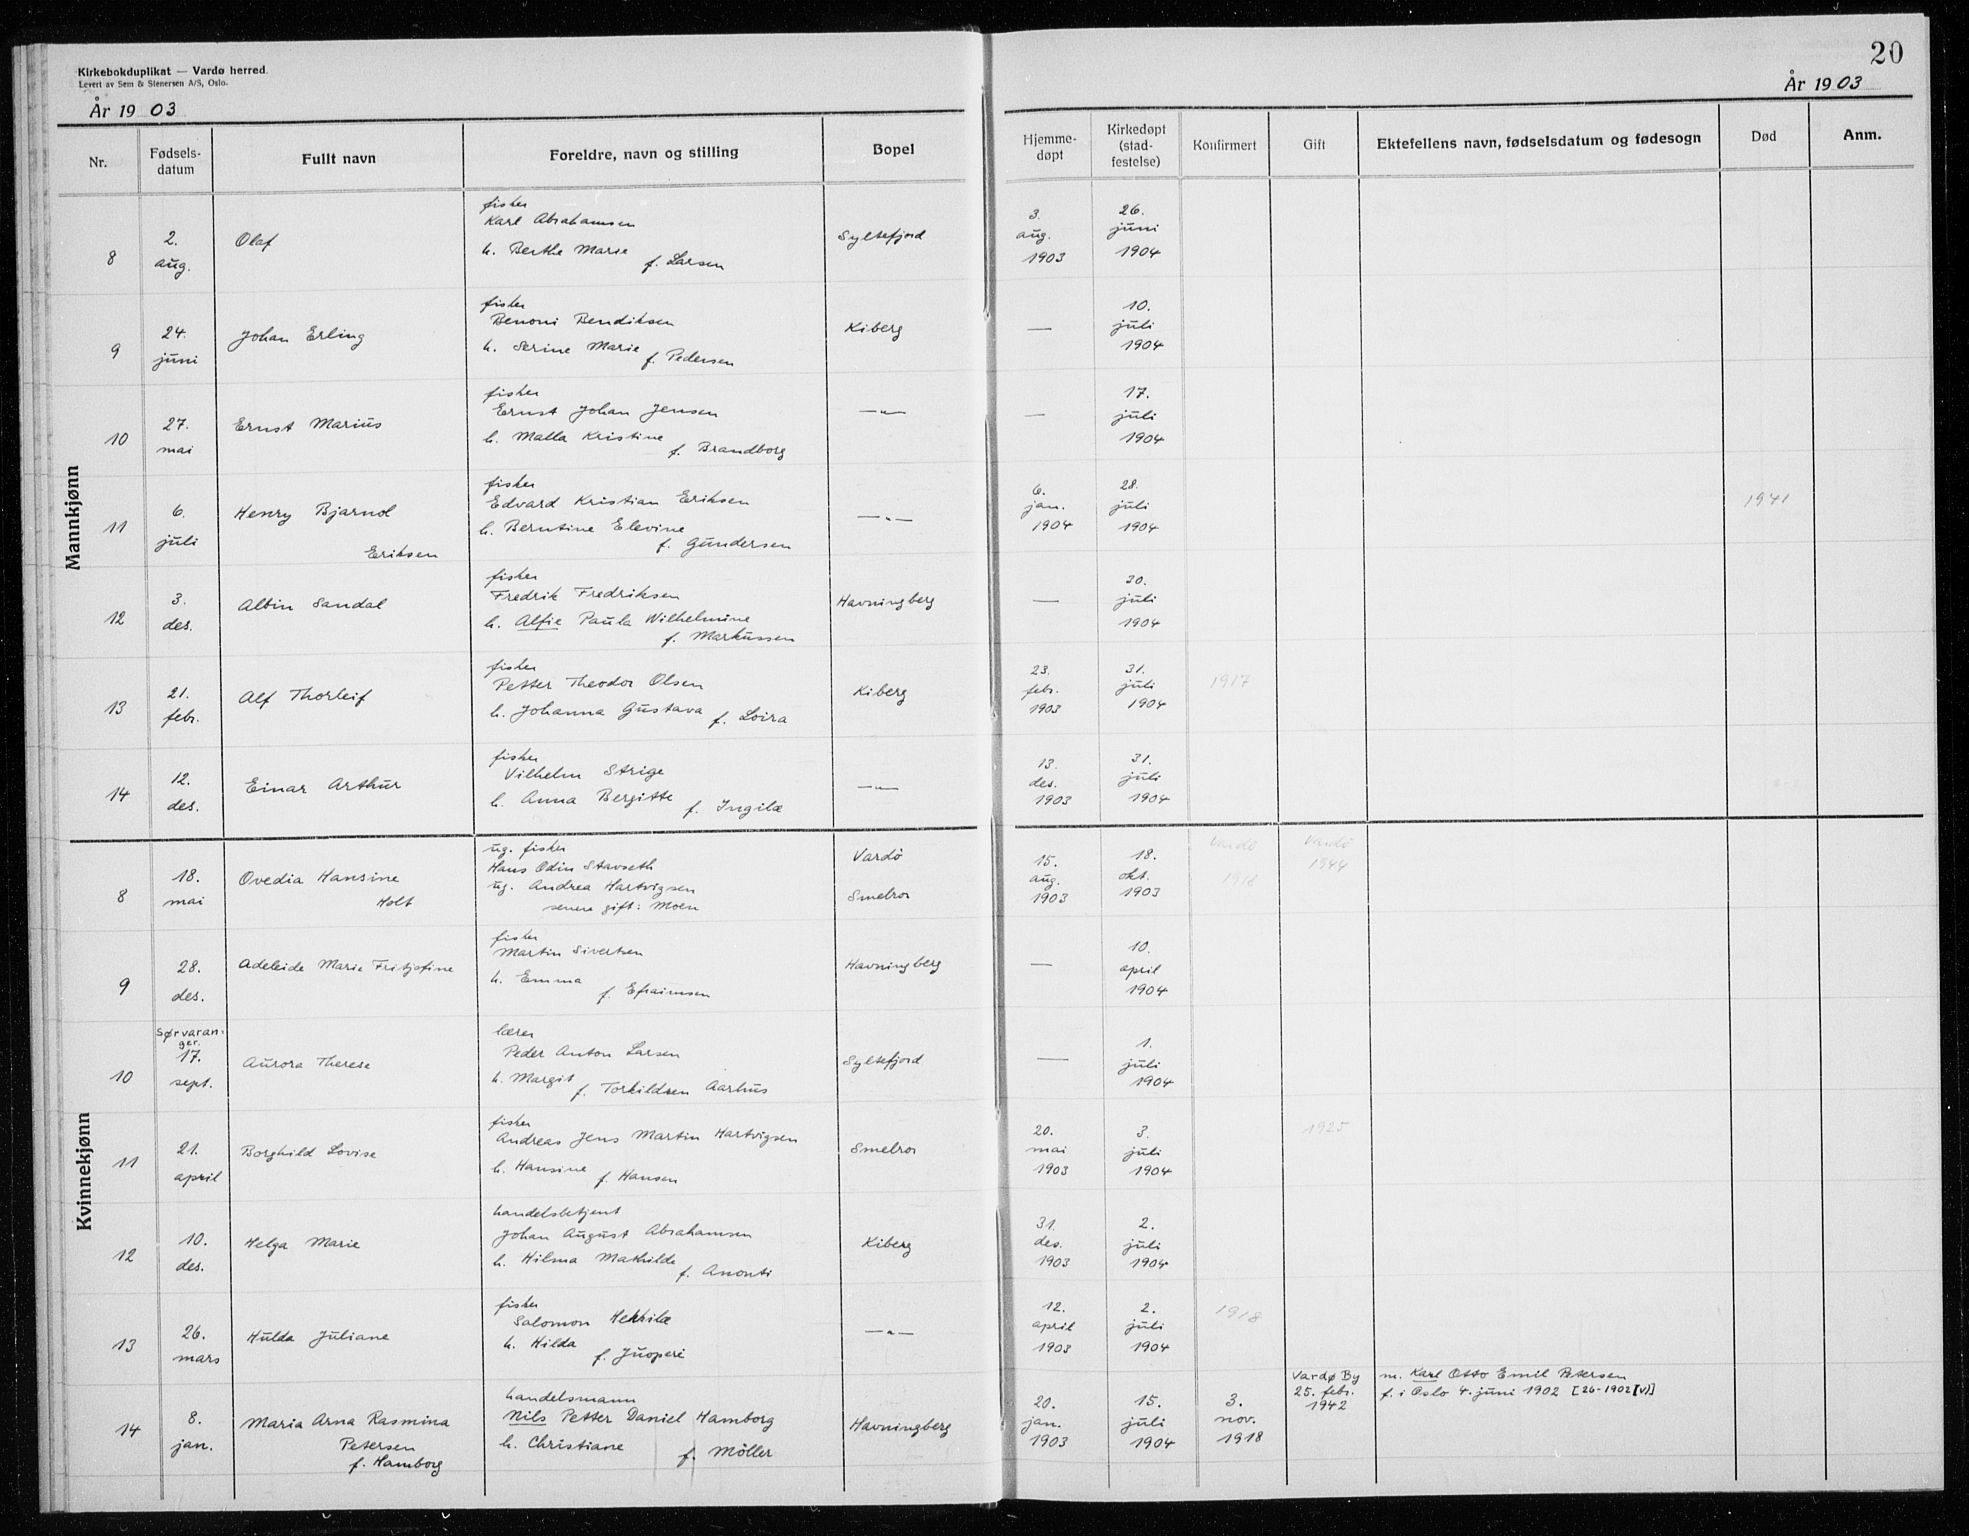 Kirkebokduplikat — Vardø herred.
Levert av Sem & Stenersen A/S, Oslo.
År 1903
20
År 1903
Nr.
Fødsels-
datum
Fullt navn
Foreldre, navn og stilling
Bopel
Hjemme-
døpt
Kirkedøpt
(stad-
festelse)
Konfirmert
Gift
Ektefellens navn, fødselsdatum og fødesogn
Død
Anm.
Mannkjønn
8
2.
aug.
Olaf
fisker
Karl Abrahamsen
h. Berthe Marie
f. Larsen
Syltefjord
3.
aug.
1903
26.
juni
1904
9
24.
juni
Johan Erling
fisker
Benoni Bendiksen
h. Serine Marie
f. Pedersen
Kiberg
—
10.
juli
1904
10
27.
mai
Ernst Marius
fisker
Ernst Johan Jensen
h. Malla Kristine
f. Brandborg
—"—
—
17.
juli
1904
11
6.
juli
Henry Bjarnol
Eriksen
fisker
Edvard Kristian Eriksen
h. Berntine Elevine
f. Gundersen
—"—
6.
jan.
1904
28.
juli
1904
1941
12
3.
des.
Albin Sandal
fisker
Fredrik Fredriksen
h. Alfie Paula Wilhelmine
f. Markussen
Havningberg
—
30.
juli
1904
13
21.
febr.
Alf Thorleif
fisker
Petter Theodor Olsen
h. Johanna Gustava f. Loira
Kiberg
23.
febr.
1903
31.
juli
1904
1917
14
12.
des.
Einar Arthur
fisker
Vilhelm Strige
h. Anna Bergitte
f. Ingilæ
—"—
13.
des.
1903
31.
juli
1904
Kvinnekjønn
8
18.
mai
Ovedia Hansine
Holt
ug. fisker
Hans Odin Stavseth
ug. Andrea Hartvigsen
senere gift: Moen
Vardö
Smelror
15.
aug.
1903
18.
okt.
1903
Vardö
1918
Vardö
1944
9
28.
des.
Adeleide Marie Fritjofine
fisker
Martin Sivertsen
h. Emma
f. Efraimsen
Havningberg
—
10.
april
1904
10
Sørvaran-
ger.
17.
sept.
Aurora Therese
lærer
Peder Anton Larsen
h. Margit
f. Torkildsen Aarhus
Syltefjord
—
1.
juli
1904
11
21.
april
Borghild Lovise
fisker
Andreas Jens Martin Hartvigsen
h. Hansine
f. Hansen
Smelror
20.
mai
1903
3.
juli
1904
1925
12
10.
des.
Helga Marie
handelsbetjent
Johan August Abrahamsen
h. Hilma Mathilde
f. Anonti
Kiberg
31.
des.
1903
2.
juli
1904
13
26.
mars
Hulda Juliane
fisker
Salomon Hekkilæ
h. Hilda
f. Juoperi
—"—
12.
april
1903
2.
juli
1904
1918
14
8.
jan.
Maria Arna Rasmina
Petersen
f. Hamborg
handelsmann
Nils Petter Daniel Hamborg
h. Christiane
f. Möller
Havningberg
20.
jan.
1903
15.
juli
1904
3.
nov.
1918
Vardø By
25. febr.
1942
m. Karl Otto Emil Petersen
f. i Oslo 4. juni 1902 [26-1902 (V)]